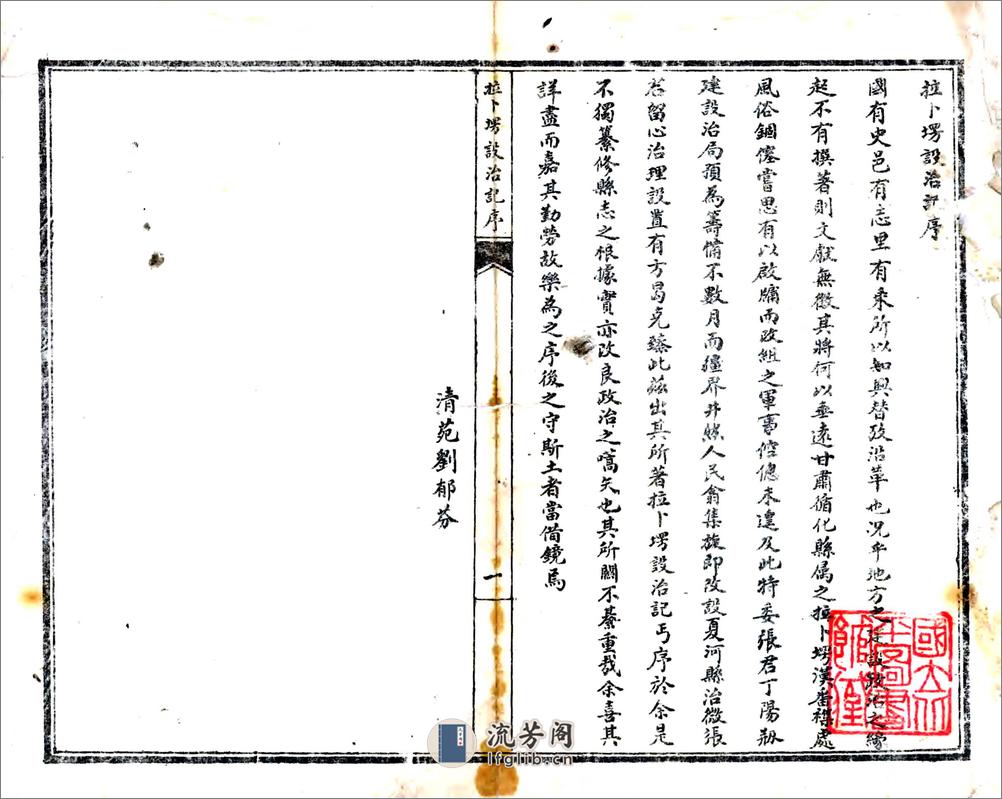 拉卜塄設治記序
國有史邑有志里有乘所以知興替攷沿革也況乎地方之建設政治之緣
起不有撰著則文獻無徵其將何以垂遠甘肅循化縣属之拉卜塄漢番襍處
風俗錮僿嘗思有以啟牖而改組之軍事倥傯未遑及此特委張君丁陽籾
建設治局預為籌備不數月而疆界井然人民翕集旋即改設夏河縣治微張
君留心治理設置有方曷克臻此茲出其所著拉卜塄設治記丐序於余是
不獨纂修縣志之根據實亦改良政治之嚆矢也其所關不綦重哉余喜其
詳盡而嘉其勤勞故樂為之序後之守斯土者當借鏡焉
清苑劉郁芬
拉卜塄設治記序
一
流芳阁
lfglib.cn